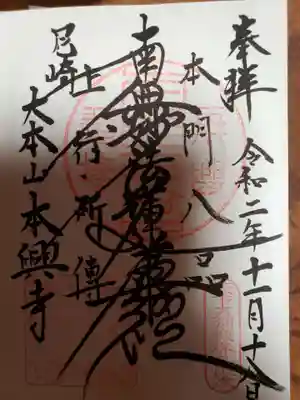 奉拝 令和二年十一月十八日
本門八品
南無妙法蓮華経
上行所傳
尼崎
大本山本興寺